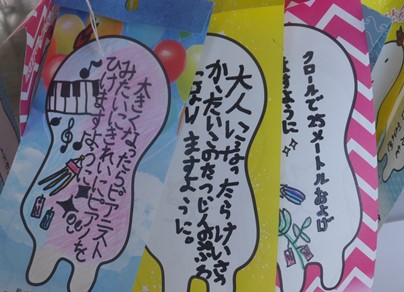 大きくなったらピアニスト
みたいにきれいにピアノを
ひけますように
大人になったらけいさつ
かんたいこみたつじんおぶる
っこいしますように。
クロールで25メートルおよげ
ますように